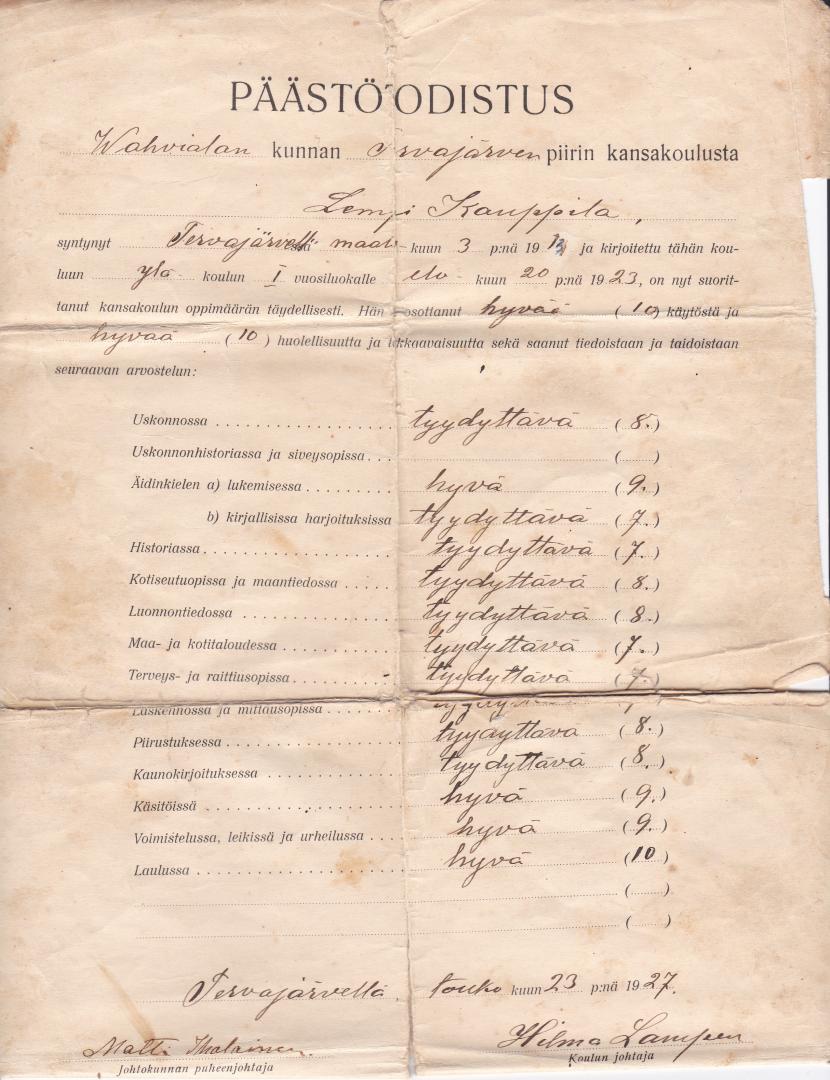 PÄÄSTÖTODISTUS
Wahvialan kunnan Tervajärven piirin kansakoulusta
Lempi Kauppila,
syntynyt Tervajärvellä maalis kuun 3 p:nä 19 ja kirjoitettu tähän kou-
luun ylä koulun I vuosiluokalle elo kuun 20 p:nä 1923, on nyt suorit-
tanut kansakoulun oppimäärän täydellisesti. Hän osottanut hyvää (10) käytöstä ja
hyvää (10) huolellisuutta ja tarkkaavaisuutta sekä saanut tiedoistaan ja taidoistaan
seuraavan arvostelun:
Uskonnossa . . . . . . . . . . . . . . . . . . tyydyttävä (8.)
Uskonnonhistoriassa ja siveysopissa . . . ( )
Äidinkielen a) lukemisessa . . . . . . . . . hyvä (9.)
b) kirjallisissa harjoituksissa tyydyttävä (7.)
Historiassa . . . . . . . . . . . . . . . . . . . . tyydyttävä (7.)
Kotiseutuopissa ja maantiedossa . . . . . tyydyttävä (8.)
Luonnontiedossa . . . . . . . . . . . . . . . tyydyttävä (8.)
Maa- ja kotitaloudessa . . . . . . . . . . . tyydyttävä (7.)
Terveys- ja raittiusopissa . . . . . . . . . . tyydyttävä (7.)
Laskennossa ja mittausopissa . . . . . . .
Piirustuksessa . . . . . . . . . . . . . . . . . tyydyttävä (8.)
Kaunokirjoituksessa . . . . . . . . . . . . . tyydyttävä (8.)
Käsitöissä . . . . . . . . . . . . . . . . . . . hyvä (9.)
Voimistelussa, leikissä ja urheilussa . . . . hyvä (9.)
Laulussa . . . . . . . . . . . . . . . . . . . . hyvä (10)
( )
( )
Tervajärvellä, touko kuun 23 p:nä 1927.
Matti Hilma Lampen
Johtokunnan puheenjohtaja Koulun johtaja